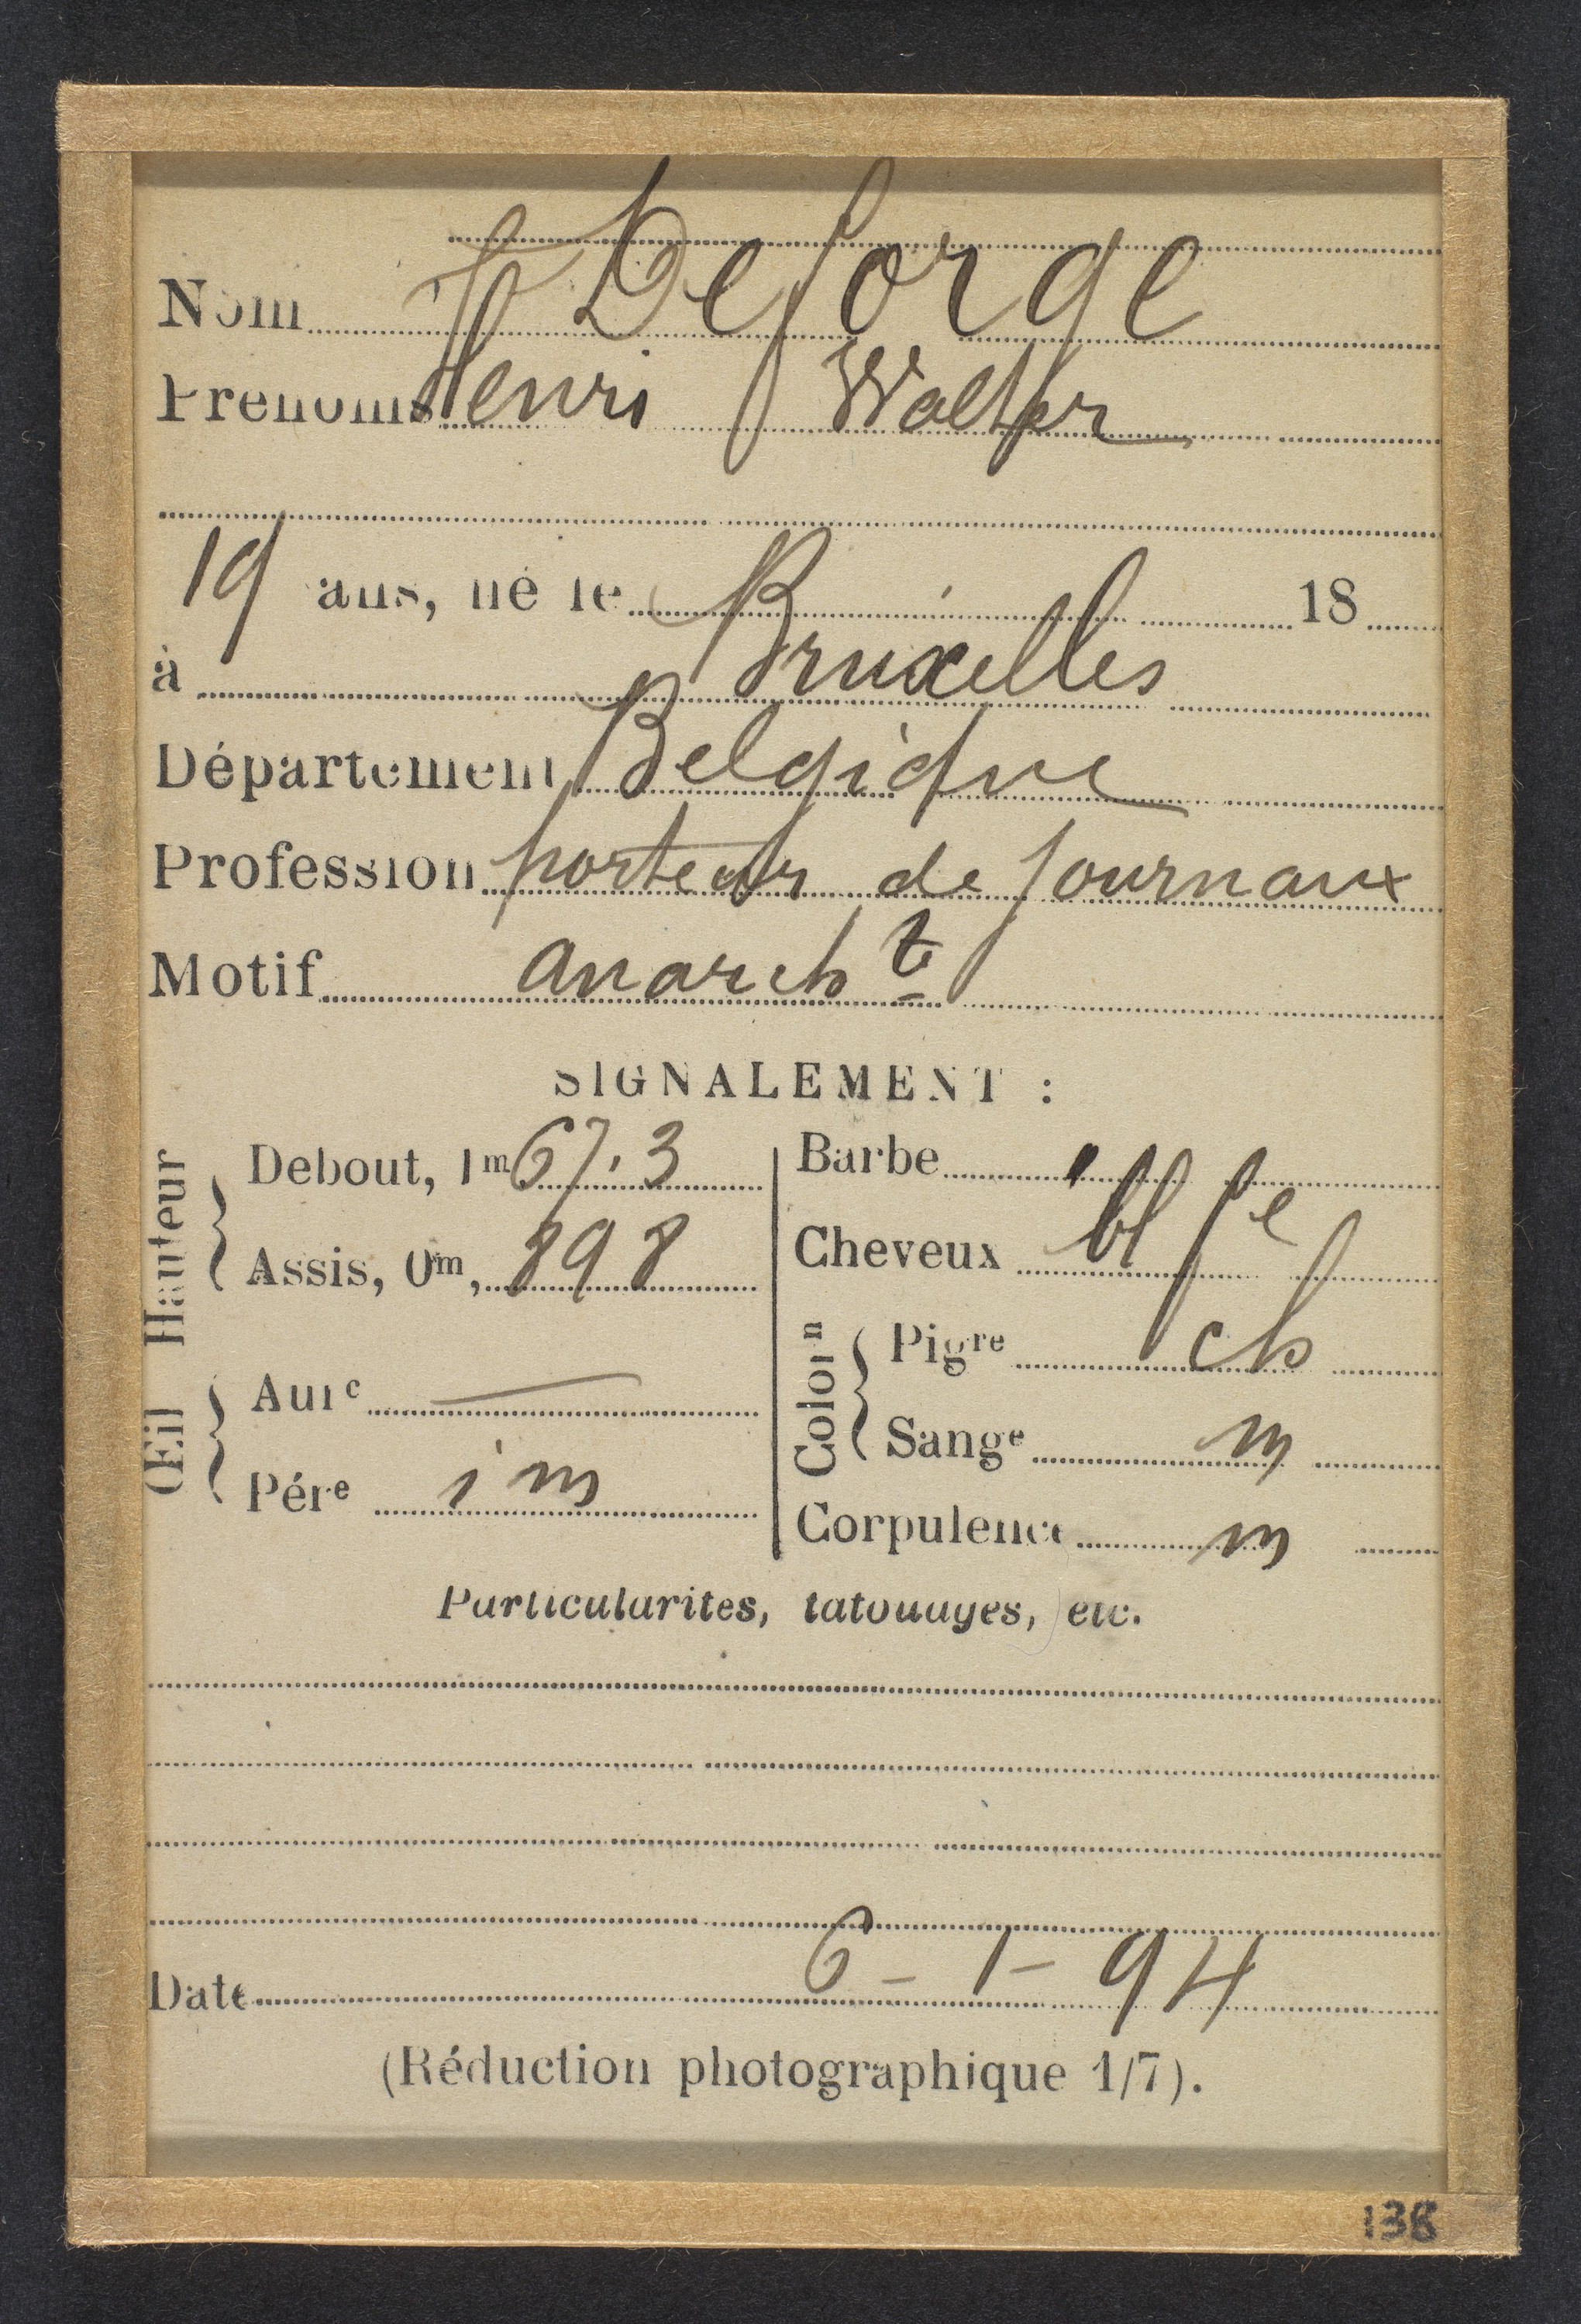 Nom Deforge
Prénoms Henri Walter
19 ans, né le 18
à Bruxelles
Département Belgique
Profession porteur de journaux
Motif anarch te
SIGNALEMENT :
Hauteur
Debout, 1m 67.3
Assis, 0m, 898
Œil
Aure —
Pére i m
Barbe
Cheveux bl fe
Colorn
Pigre ch
Sange m
Corpulence m
Particularités, tatouages, etc.
Date 6-1-94
(Réduction photographique 1/7).
138